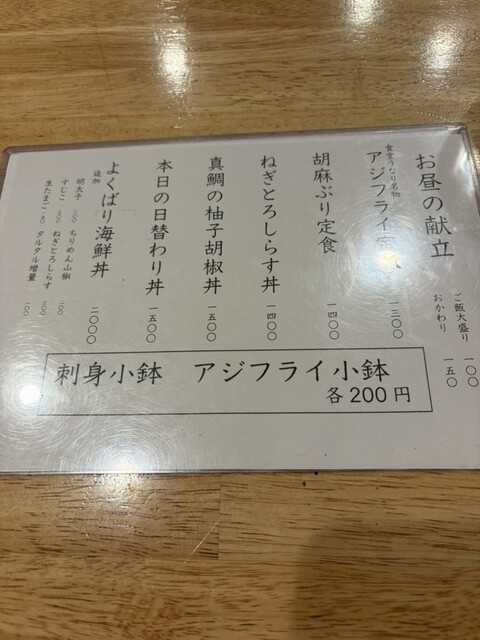 お昼の献立
ご飯大盛り 一〇〇
おかわり 一五〇
食堂うなり名物
アジフライ定食 一三〇〇
胡麻ぶり定食 一四〇〇
ねぎとろしらす丼 一四〇〇
真鯛の柚子胡椒丼 一五〇〇
本日の日替わり丼 一五〇〇
よくばり海鮮丼 二〇〇〇
追加
明太子
ちりめん山椒
すじこ
ねぎとろしらす
生たまご
タルタル増量 一〇〇
刺身小鉢 アジフライ小鉢
各200円